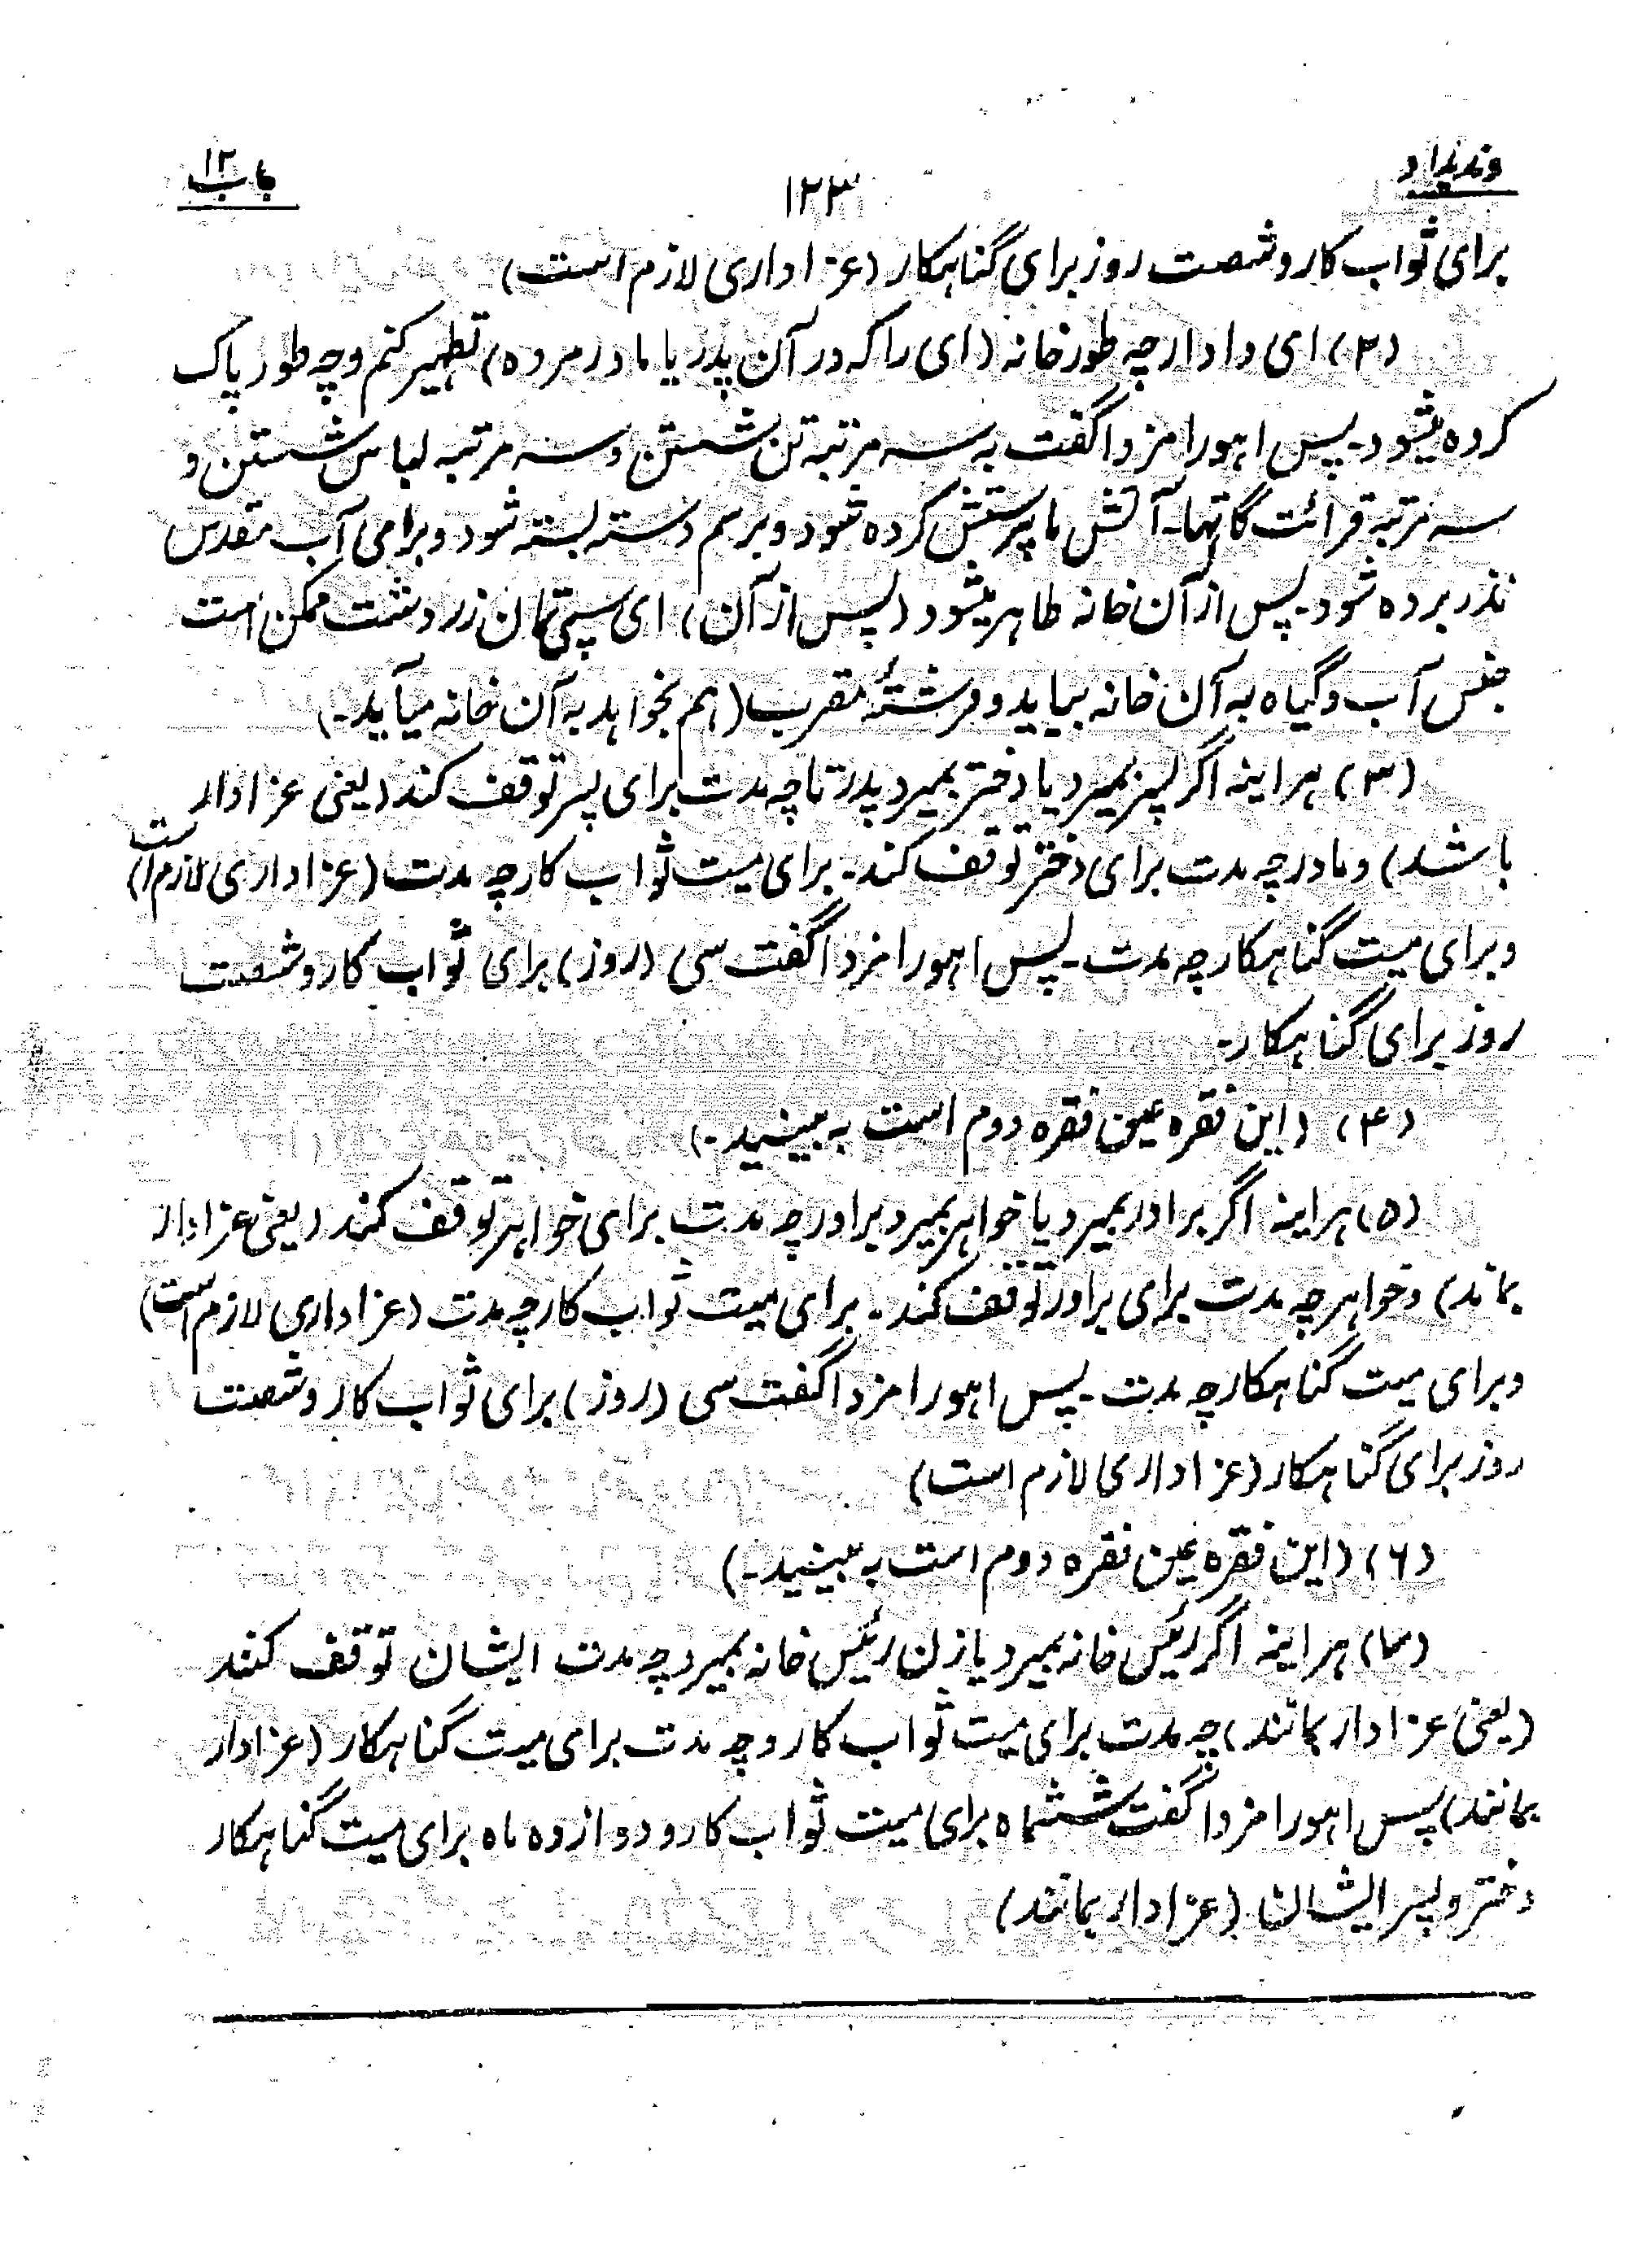 وندیداد
۱۲۳
باب ۱۲
برای ثواب کار و شصت روز برای گناهکار (عزاداری لازم است)
(۲) ای دادار چه طور خانه (ای را که در آن پدر یا مادر مرده) تطهیر کنم و چه طور پاک
کرده میشود۔ پس اهورا مزدا گفت به سه مرتبه تن شستن و سه مرتبه لباس شستن و
سه مرتبه قرائت گاتها۔ آتش ما پرستش کرده شود و برسم دسته بسته شود و برای آب مقدس
نذر برده شود۔ پس از آن خانه طاهر میشود (پس از آن) ای سپی تمان زردشت ممکن است
جنس آب و گیاه به آن خانه بیاید و فرشتهٔ مقرب (هم بخواهد به آن خانه میآید۔)
(۳) هراینه اگر پسر بمیرد یا دختر بمیرد پدر تا چه مدت برای پسر توقف کند (یعنی عزادار
باشد) و مادر چه مدت برای دختر توقف کند۔ برای میت ثواب کار چه مدت (عزاداری لازم است)
و برای میت گناهکار چه مدت۔ پس اهورا مزدا گفت سی (روز) برای ثواب کار و شصت
روز برای گناهکار۔
(۴) (این فقره عین فقره دوم است به بینید۔)
(۵) هراینه اگر برادر بمیرد یا خواهر بمیرد برادر چه مدت برای خواهر توقف کند (یعنی عزادار
بماند) و خواهر چه مدت برای برادر توقف کند۔ برای میت ثواب کار چه مدت (عزاداری لازم است)
و برای میت گناهکار چه مدت۔ پس اهورا مزدا گفت سی (روز) برای ثواب کار و شصت
روز برای گناهکار (عزاداری لازم است)
(۶) (این فقره عین فقره دوم است به بینید۔)
(۷) هراینه اگر رئیس خانه بمیرد یا زن رئیس خانه بمیرد چه مدت ایشان توقف کنند
(یعنی عزادار بمانند) چه مدت برای میت ثواب کار و چه مدت برای میت گناهکار (عزادار
بمانند) پس اهورا مزدا گفت ششماه برای میت ثواب کار و دوازده ماه برای میت گناهکار
دختر و پسر ایشان (عزادار بمانند)